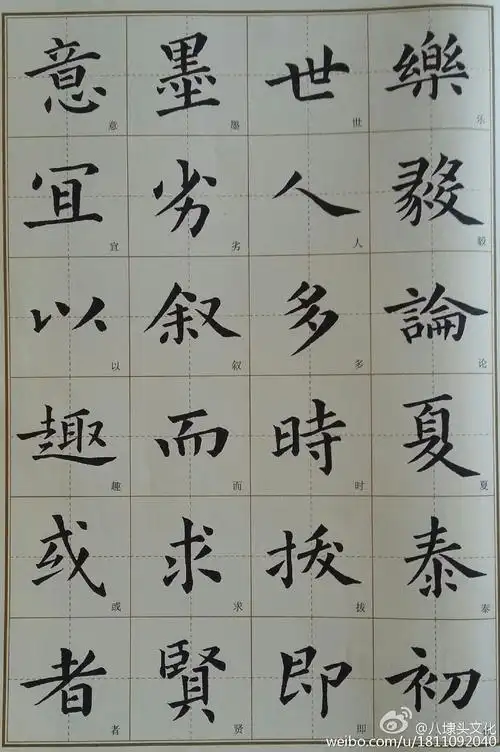 樂毅論夏泰初
乐毅论夏泰
世人多時拔即
世人多时拔即
墨劣叙而求賢
墨劣叙而求贤
意宜以趣或者
意宜以趣或者
@八埭头文化
weibo.com/u/1811092040